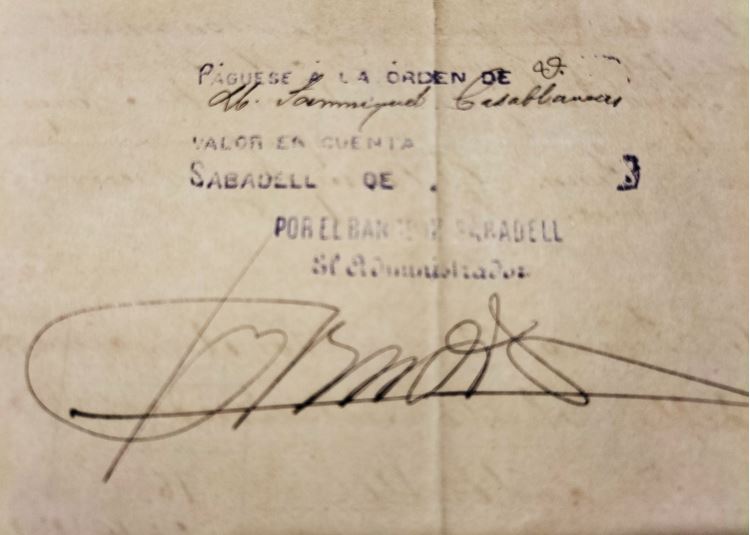 PÁGUESE Á LA ÓRDEN DE D.
M. Sanmiguel Casablancas
VALOR EN CUENTA
SABADELL DE
POR EL BANCO DE SABADELL
El Administrador